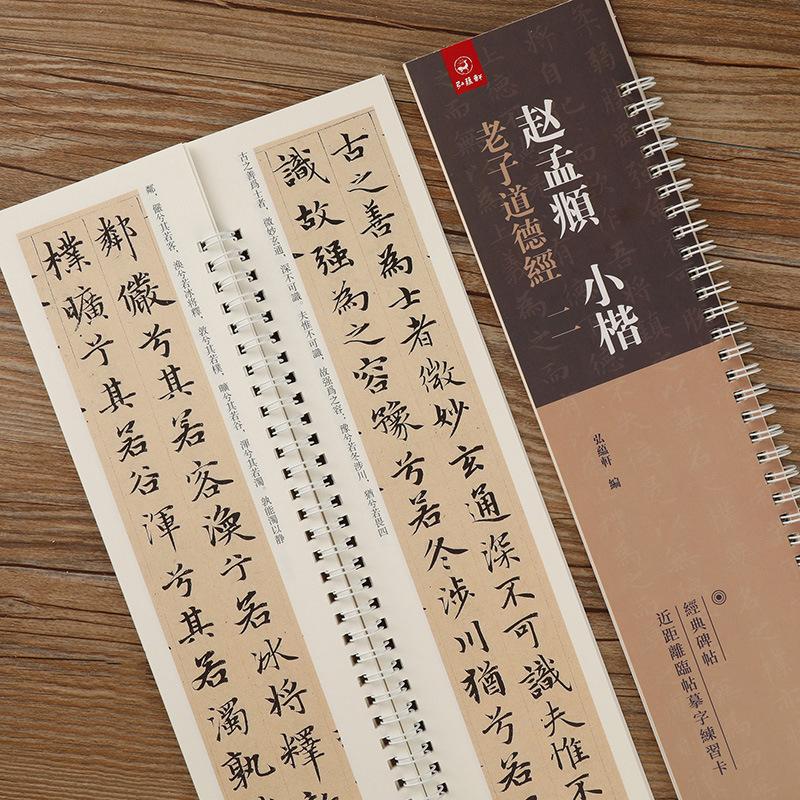 弘蕴軒
赵孟頫 小楷
老子道德經 二
弘蕴軒 编
經典碑帖
近距離臨帖摹字練習卡
古之善為士者微妙玄通深不可識夫惟不
識故强為之容豫兮若冬涉川猶兮若
古之善爲士者，微妙玄通，深不可識。夫惟不可識，故强爲之容。豫兮若冬涉川，猶兮若畏四
鄰儼兮其若客渙兮若冰將釋
樸曠兮其若谷渾兮其若濁孰
鄰，儼兮其若客，渙兮若冰将釋，敦兮其若樸，曠兮其若谷，渾兮其若濁。孰能濁以静